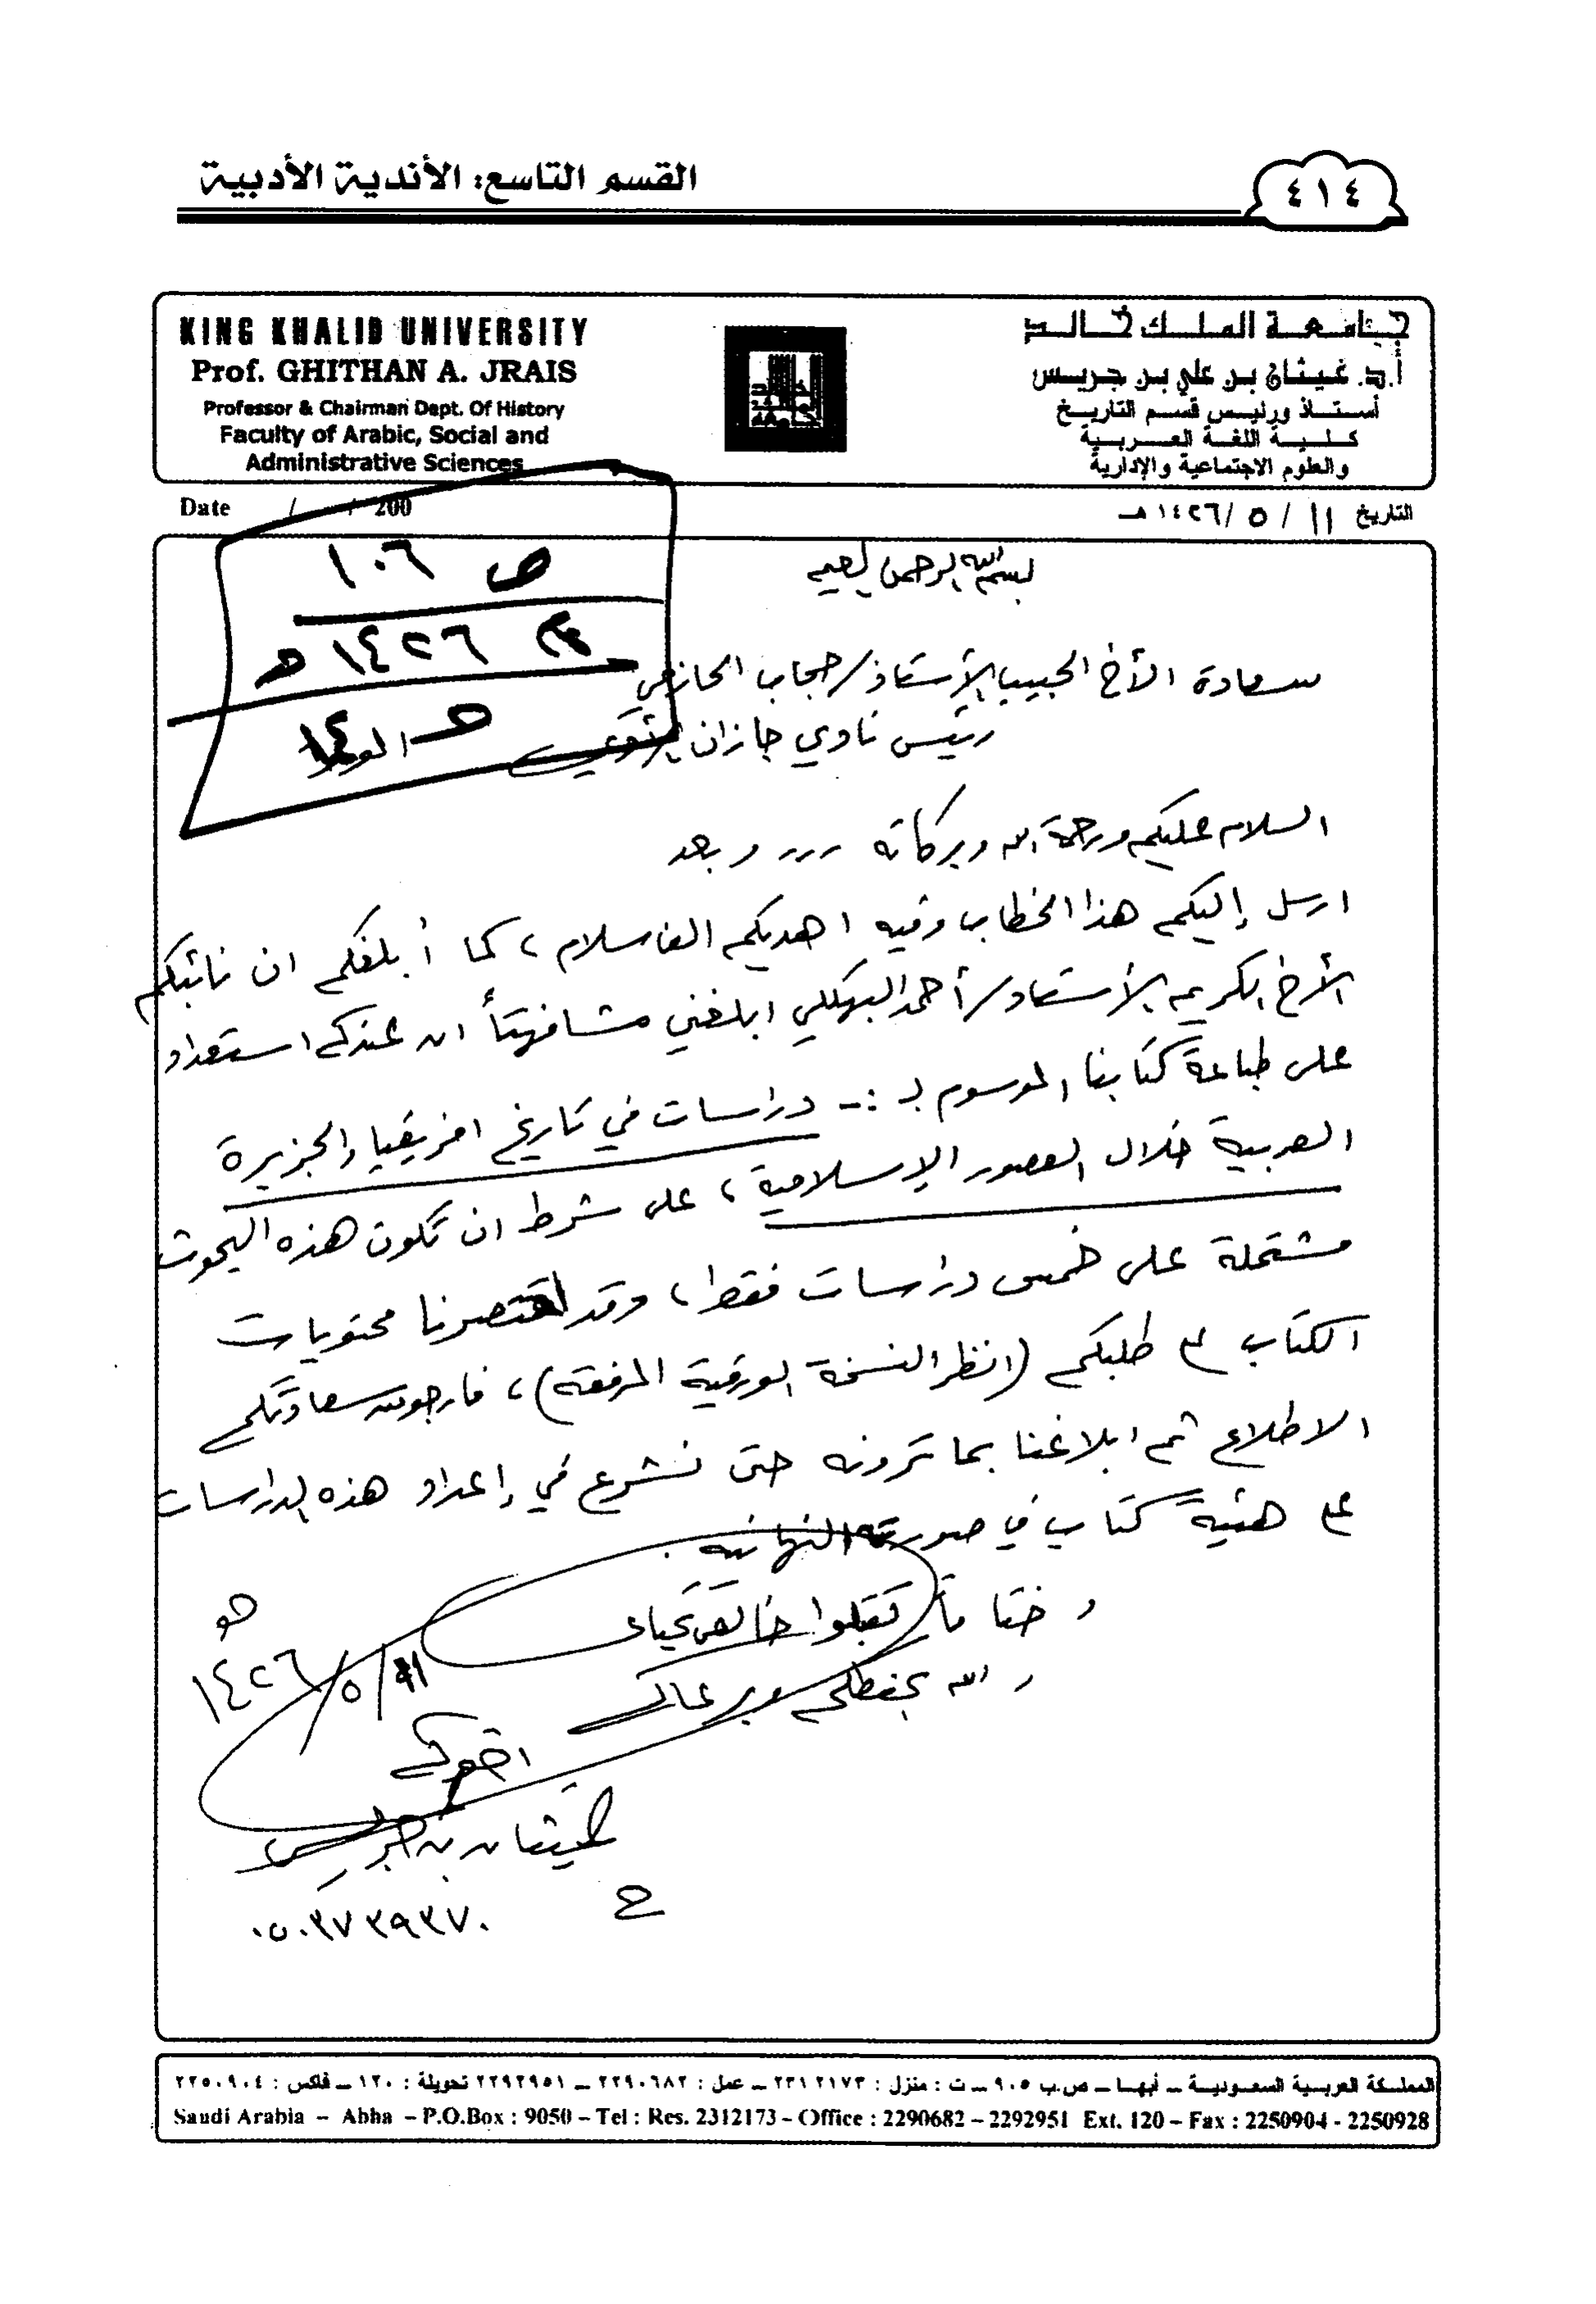 القسم التاسع: الأندية الأدبية
٤١٤
KING KHALID UNIVERSITY
Prof. GHITHAN A. JRAIS
Professor & Chairman Dept. Of History
Faculty of Arabic, Social and
Administrative Sciences
جامعة الملك خالد
أ.د. غيثان بن علي بن جريس
أستاذ ورئيس قسم التاريخ
كلية اللغة العربية
والعلوم الاجتماعية والإدارية
Date / / 200
التاريخ ١١ / ٥ / ١٤٢٦ هـ
ص ١٠٦
١٤٢٦ هـ
بسم الله الرحمن الرحيم
سعادة الأخ الحبيب الأستاذ/ حجاب الحازمي
رئيس نادي جازان الأدبي
السلام عليكم ورحمة الله وبركاته ... وبعد
ارسل إليكم هذا الخطاب وفيه اهديكم الف سلام، كما أبلغكم ان نائبكم
الأخ الكريم الأستاذ/ أحمد البهكلي ابلغني مشافهتاً ان عندكم استعداد
على طباعة كتابنا الموسوم بـ :- دراسات في تاريخ افريقيا والجزيرة
العربية خلال العصور الإسلامية، على شرط ان تكون هذه البحوث
مشتملة على خمس دراسات فقط، وقد اختصرنا محتويات
الكتاب على طلبكم (انظر النسخة الورقية المرفقة)، فارجو من سعادتكم
الاطلاع ثم ابلاغنا بما ترونه حتى نشرع في إعداد هذه الدراسات
على هيئة كتاب في صورته النهائية.
وختاماً تقبلوا خالص تحياتي
والله يحفظكم ويرعاكم
١١/٥/١٤٢٦
هـ
اخوكم
غيثان بن جريس
ج
٠٥٠٣٧٣٩٣٧٠
المملكة العربية السعودية ــ أبها ــ ص.ب ٩٠٥ ــ ت : منزل : ٢٣١٢١٧٣ ــ عمل : ٢٢٩٠٦٨٢ ــ ٢٢٩٢٩٥١ تحويلة : ١٢٠ ــ فاكس : ٢٢٥٠٩٠٤
Saudi Arabia – Abha – P.O.Box : 9050 – Tel : Res. 2312173 – Office : 2290682 – 2292951 Ext. 120 – Fax : 2250904 - 2250928